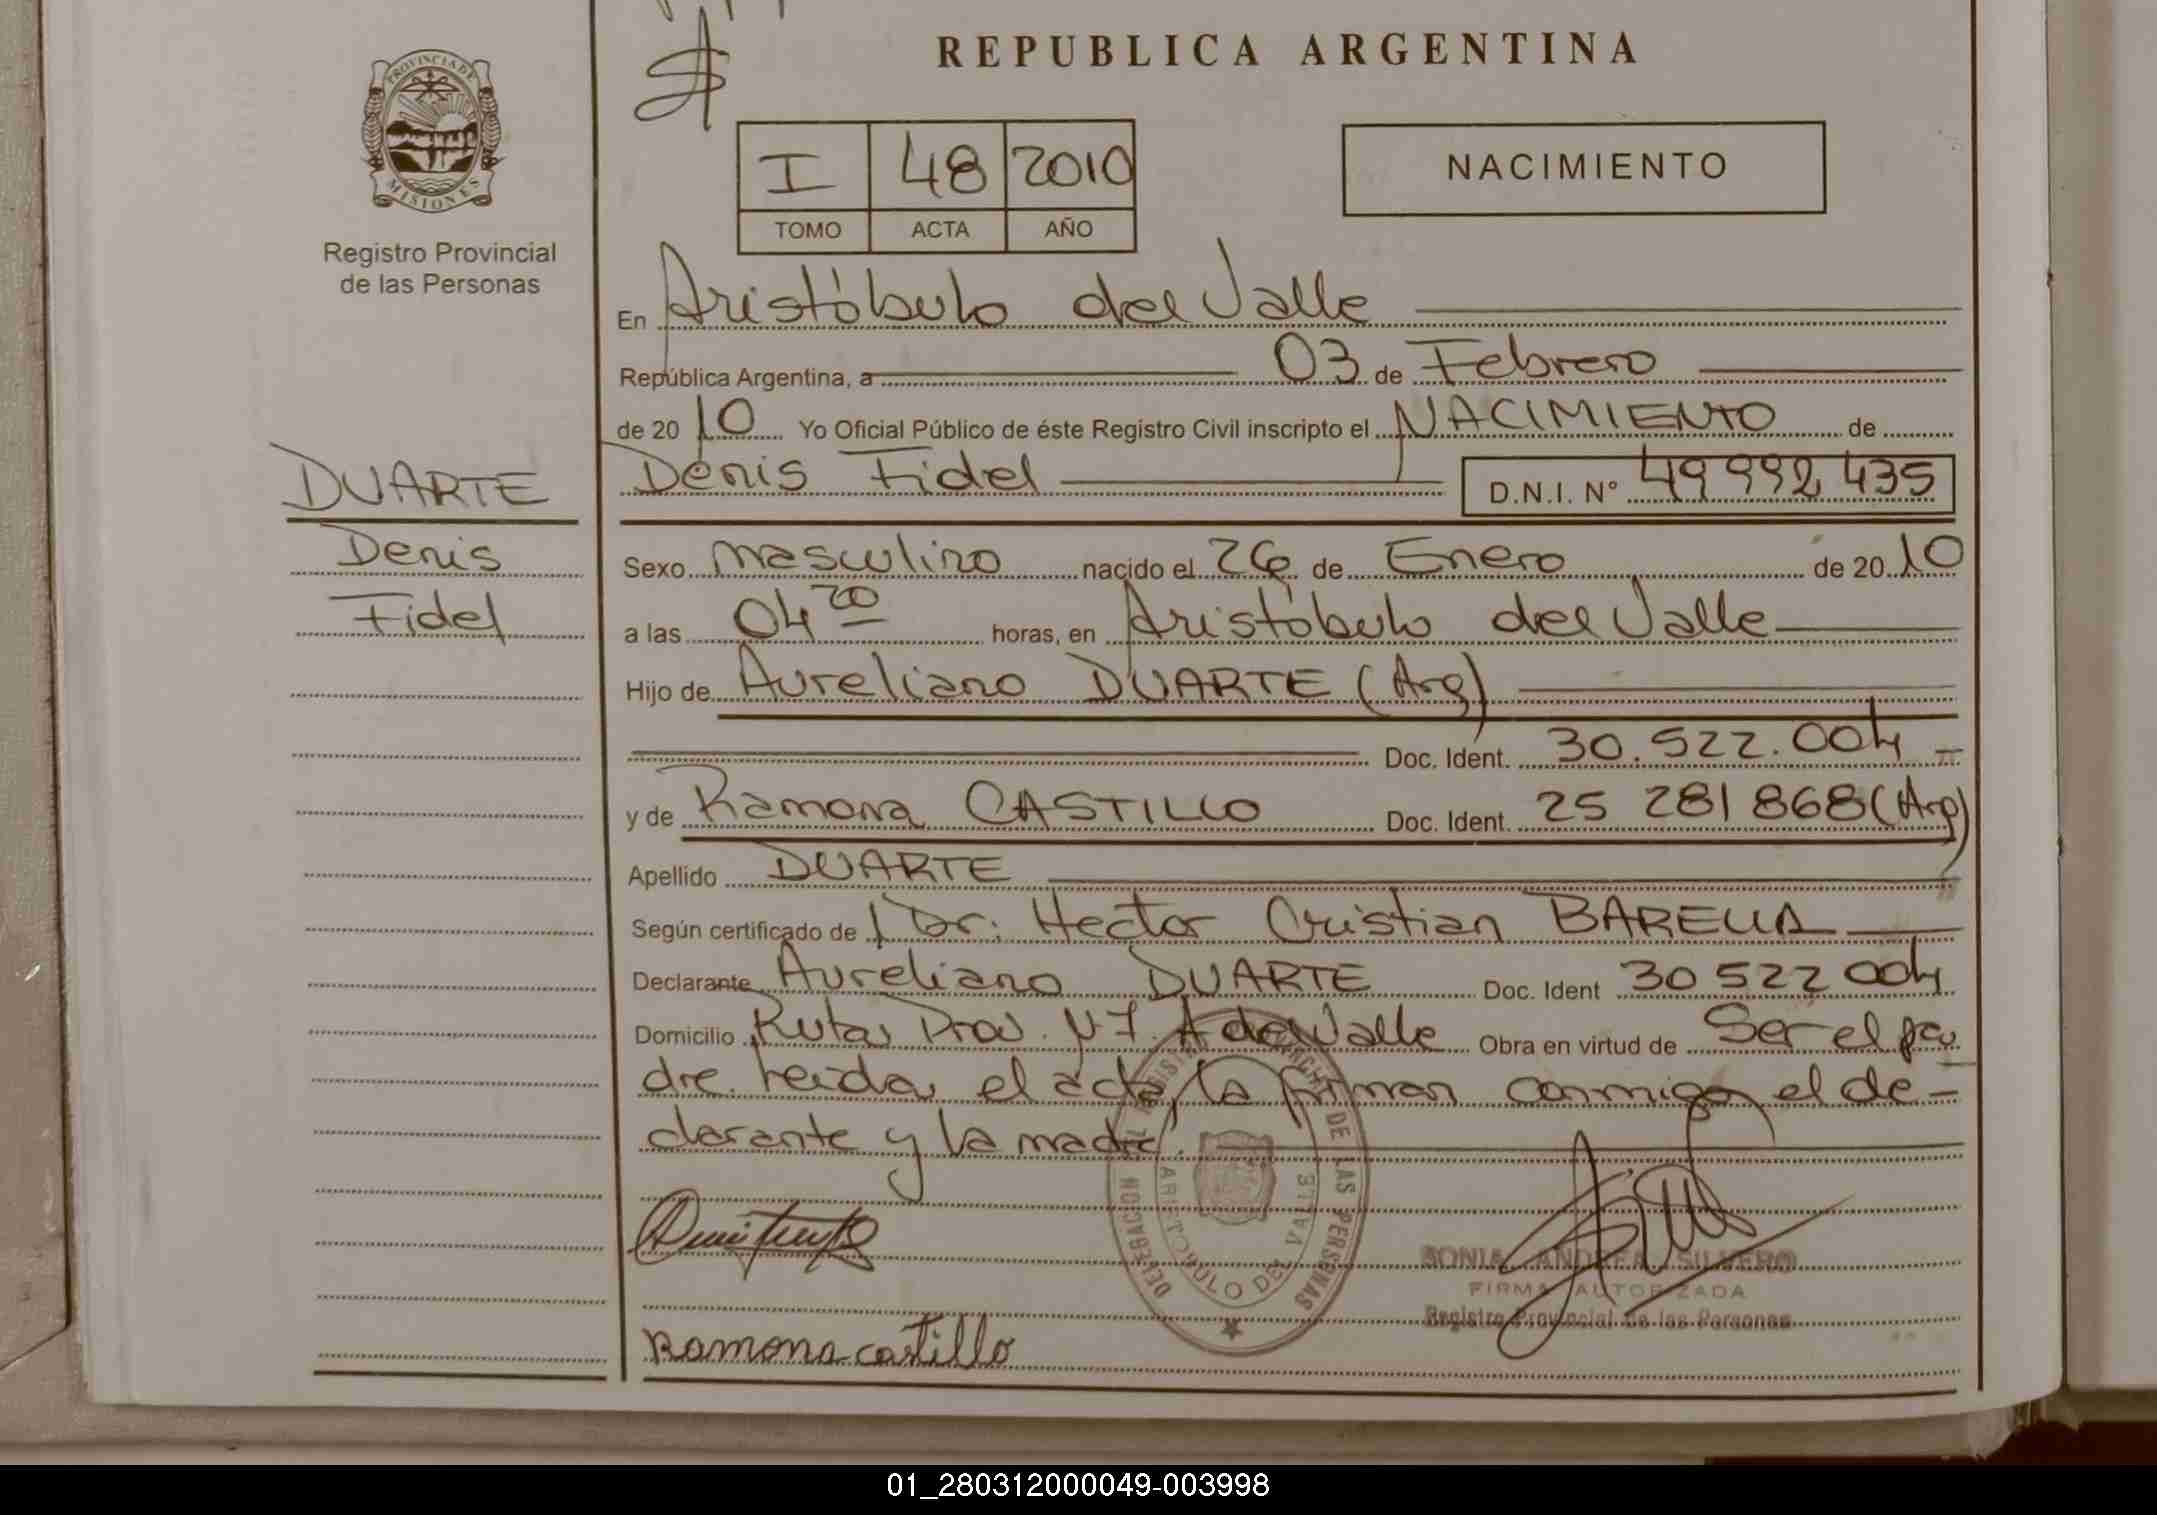 REPUBLICA ARGENTINA
PROVINCIA DE MISIONES
Registro Provincial
de las Personas
I 48 2010
TOMO ACTA AÑO
NACIMIENTO
En Aristóbulo del Valle
República Argentina, a 03 de Febrero
de 20 10 Yo Oficial Público de éste Registro Civil inscripto el NACIMIENTO de
Denis Fidel D.N.I. N° 49 992 435
DUARTE
Denis
Fidel
Sexo masculino nacido el 26 de Enero de 20 10
a las 04 20 horas, en Aristóbulo del Valle
Hijo de Aureliano DUARTE (Arg)
Doc. Ident. 30.522.004
y de Ramona CASTILLO Doc. Ident. 25 281 868 (Arg)
Apellido DUARTE
Según certificado de Dr. Hector Cristian BARELLA
Declarante Aureliano DUARTE Doc. Ident 30 522 004
Domicilio Ruta Prov. N°7. A del Valle Obra en virtud de Ser el pa
dre. Leida el acta, la firman conmigo el de-
clarante y la madre.
DELEGACION REGISTRO PROVINCIAL DE LAS PERSONAS
ARISTOBULO DEL VALLE
SONIA ANDREA SILVERO
FIRMA AUTORIZADA
Registro Provincial de las Personas
Ramona castillo
01_280312000049-003998